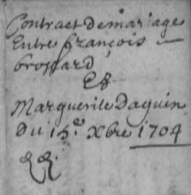 Contract de mariage
Entre françois
brossard
Et
Marguerite daguin
du 15e. Xbre 1704